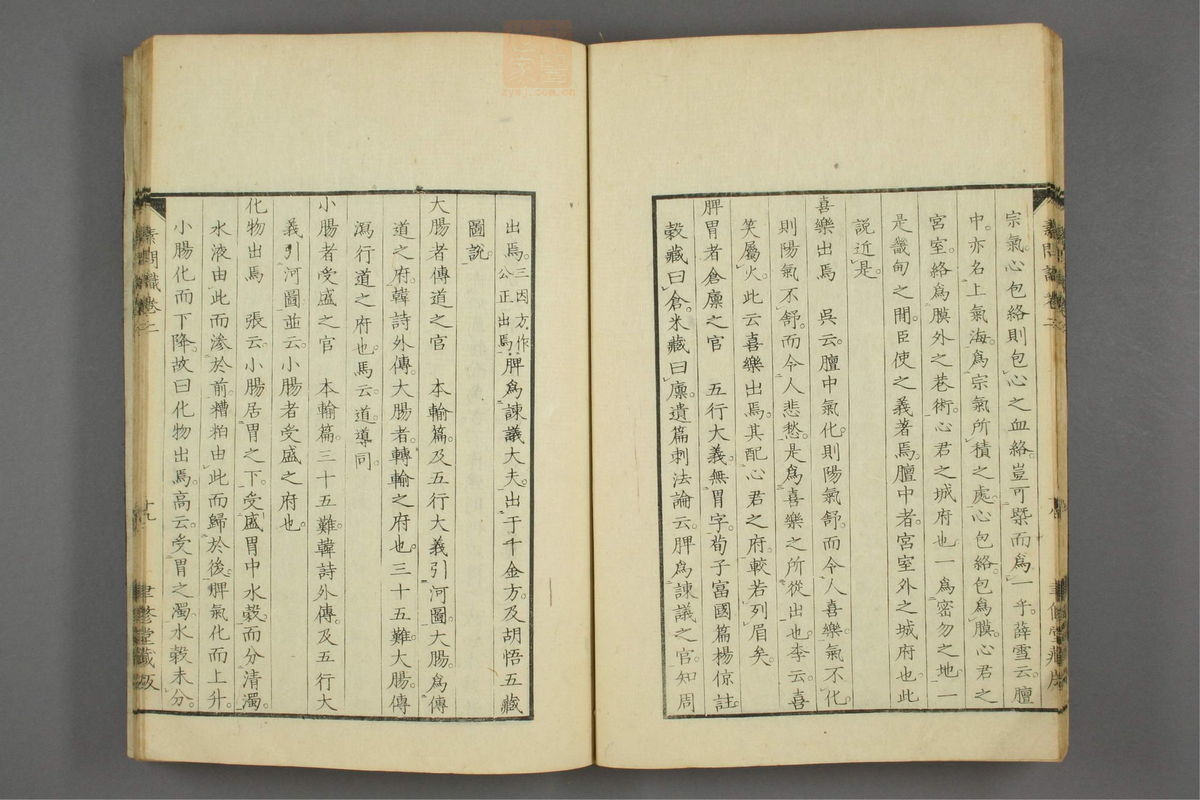 宗氣心包絡則包心之血絡豈可槩而爲一乎薛雪云膻
中亦名上氣海爲宗氣所積之處心包絡包爲膜心君之
宮室絡爲膜外之巷術心君之城府也一爲密勿之地一
是畿甸之間臣使之義著焉膻中者宮室外之城府也此
說近是
喜樂出焉 吳云膻中氣化則陽氣舒而令人喜樂氣不化
則陽氣不舒而令人悲愁是爲喜樂之所從出也李云喜
笑屬火此云喜樂出焉其配心君之府較若列眉矣
脾胃者倉廩之官 五行大義無胃字荀子富國篇楊倞註
穀藏曰倉米藏曰廩遺篇刺法論云脾爲諫議之官知周
素問識 卷二
聿修堂藏板
出焉三因方作公正出焉脾爲諫議大夫出于千金方及胡愔五藏
圖說
大腸者傳道之官 本輸篇及五行大義引河圖大腸爲傳
道之府韓詩外傳大腸者轉輸之府也三十五難大腸傳
瀉行道之府也馬云道導同
小腸者受盛之官 本輸篇三十五難韓詩外傳及五行大
義引河圖並云小腸者受盛之府也
化物出焉 張云小腸居胃之下受盛胃中水穀而分清濁
水液由此而滲於前糟粕由此而歸於後脾氣化而上升
小腸化而下降故曰化物出焉高云受胃之濁水穀未分
素問識 卷二
十九
聿修堂藏板